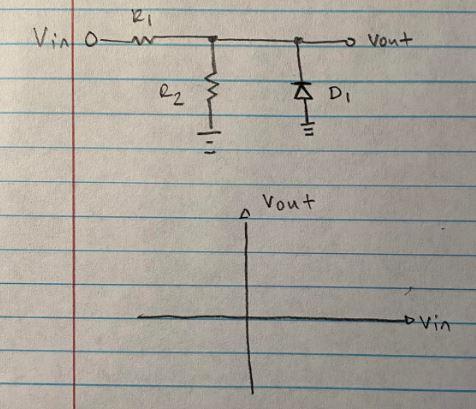 R1
Vin
Vout
R2
D1
Vout
Vin